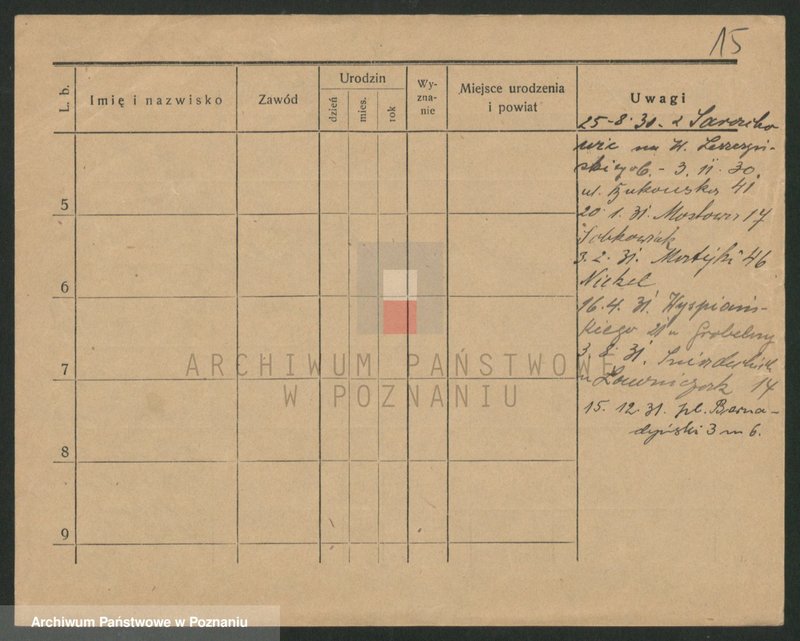 15
L. b.
Imię i nazwisko
Zawód
Urodzin
dzień
mies.
rok
Wy-
zna-
nie
Miejsce urodzenia
i powiat
Uwagi
25-8. 30. z
na
- 3. 11. 30.
ul. Żukowska 41
5
20. 1. 31. Mostowa 17
Sobkowiak
3. 2. 31. Matejki 46
Nickel
6
16. 4. 31. Wyspiań-
skiego 21 u Grobelny
3. 8. 31. Śniadeckich
7
u Ławniczak 17
15. 12. 31. pl. Berna-
dyński 3 m 6.
8
9
ARCHIWUM PAŃSTWOWE
W POZNANIU
Archiwum Państwowe w Poznaniu